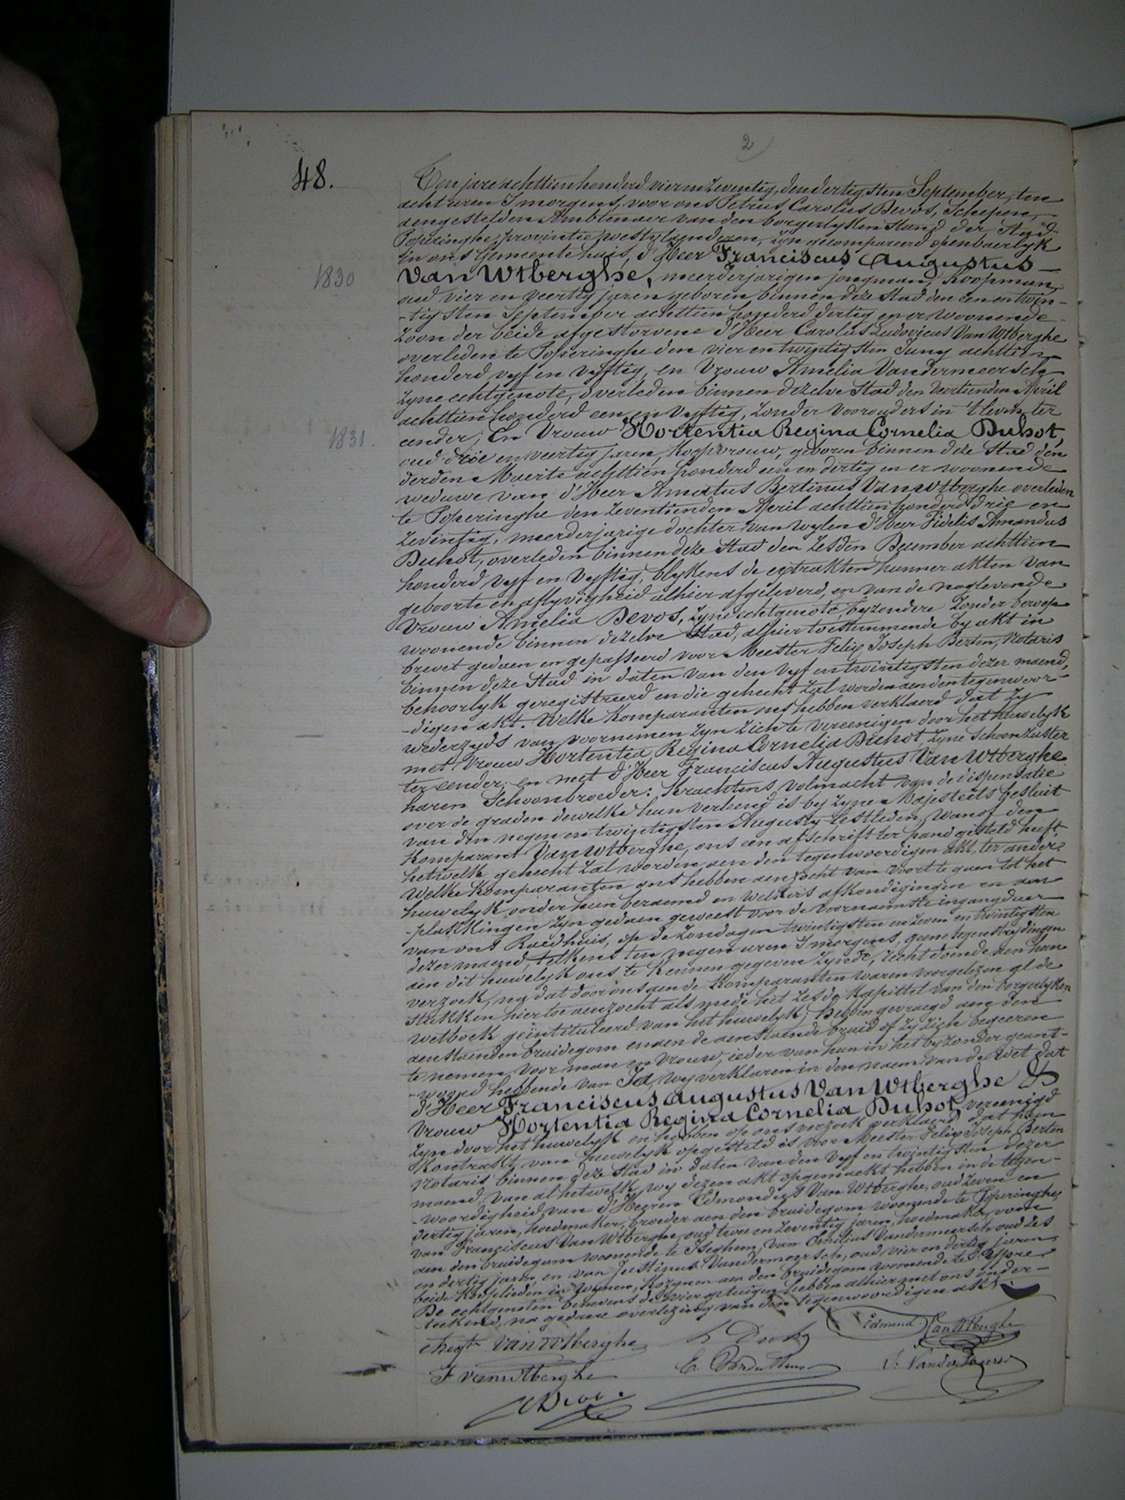 2
48.
Ten jare achttien honderd vier en zeventig, den dertigsten September, ten
acht uren s'morgens, voor ons Petrus Carolus Devos, Schepen,
aengestelden Ambtenaer van den borgerlyken Stand der Stad
Poperinghe, provintie Westvlaenderen, zyn gecompareerd openbaerlyk
in ons Gemeentehuis, d'Heer Franciscus Augustus
1830
Van Wtberghe, meerderjarigen jongman, Koopman,
oud vier en veertig jaren geboren binnen deze Stad den een en twin-
-tigsten September achttien honderd dertig en er woonende
zoon der beide afgestorvene d'Heer Carolus Ludovicus Van Wtberghe
overleden te Poperinghe den vier en twintigsten Juny achttien
honderd vyf en vyftig, en Vrouw Amelia Vandermeersch
zyne echtgenote, overleden binnen dezelve Stad den April
achttien honderd een en vyftig, zonder voorouders in 't leven ter
1831.
eender; En Vrouw Hortentia Regina Cornelia Duhot,
oud drie en veertig jaren, Koopvrouw, geboren binnen deze Stad den
derden Maerte achttien honderd een en dertig en er woonende
weduwe van d'Heer Amatus Bertinus Van Wtberghe overleden
te Poperinghe den zeventienden April achttien honderd drie en
zeventig, meerderjarige dochter van wylen d'Heer Fidelis Amandus
Duhot, overleden binnen deze Stad den zesden December achttien
honderd vyf en vyftig, blykens de extrakten hunner akten van
geboorte en aflyvigheid alhier afgeleverd, en van de naglevende
Vrouw Amelia Devos, zyne echtgenote byzondere zonder beroep
woonende binnen dezelve Stad, alhier toestemmende by akt in
brevet gedaen en gepasseerd voor Meester Felix Joseph Bertin, Notaris
binnen deze Stad in daten van den vyf en twintigsten dezer maend,
behoorlyk geregistreerd en die gehecht zal worden aen den tegenwoor-
-digen akt. Welke Komparanten ons hebben verklaerd dat zy
wederzyds van voornemen zyn zich te vereenigen door het huwelyk
met Vrouw Hortentia Regina Cornelia Duhot zyne Schoonzuster
ter eender; en met d'Heer Franciscus Augustus Van Wtberghe
haren Schoonbroeder; krachtens volmacht van de dispensatie
over de graden dewelke hun verleend is by zyne Majesteits besluit
van den negen en twintigsten Augusty lestleden, wanof den
Komparant Van Wtberghe, ons een afschrift ter hand gesteld heeft
hetwelk gehecht zal worden aen den tegenwoordigen akt, ter andere
Welke Komparanten ons hebben aenzocht van voort te gaen tot het
huwelyk voorder hun beraemd en welkers afkondigingen en aen
-plakkingen zyn gedaen geweest voor de voornaemste ingangdeur
van ons Raedhuis, op de Zondagen twintigsten en zeven en twintigsten
dezer maend, telkens ten negen uren s'morgens, geene tegenstrydingen
aen dit huwelyk ons te kennen gegeven zynde, recht doende aen hun
verzoek, na dat door ons aen de Komparanten waren voorgelezen al de
stukken hiertoe aenzocht als mede het zesde Kapittel van den borgerlyken
wetboek geintituleerd van het huwelyk; hebben gevraegd aen den
aenstaenden bruidegom en aen de aenstaende bruid of zy zich begeeren
te nemen voor man en vrouw, ieder van hun in het byzonder geant-
-woord hebbende van Ja, wy verklaren in den naem van de wet dat
d'Heer Franciscus Augustus Van Wtberghe &
Vrouw Hortentia Regina Cornelia Duhot, vereenigd
zyn door het huwelyk en hebben op ons verzoek verklaerd dat hun
Kontrakt van huwelyk opgesteld is voor Meester Felix Joseph Bertin
Notaris binnen deze Stad in daten van den vyf en twintigsten dezer
maend, van al hetwelk wy dezen akt opgemaekt hebben in de tegen-
-woordigheid van d'Heeren Edmondus Van Wtberghe, oud zeven en
dertig jaren, hoedmaker, broeder aen den bruidegom woonende te Poperinghe,
van Franciscus Van Wtberghe, oud twee en zeventig jaren, hoedmaker, oom
aen den bruidegom woonende te Iseghem, van Vandermeersch oud zes
en dertig jaren, en van Justinus Vandermeersch, oud vier en dertig jaren,
beide Kooplieden in wynen, Kozynen aen den bruidegom woonende te Ypre
De echtgenoten benevens de vier getuigen hebben alhier met ons onder-
teekend, na gedane overlezing van den tegenwoordigen akt.
Aug.t Van Wtberghe
Edmond Van Wtberghe
F vanwtberghe